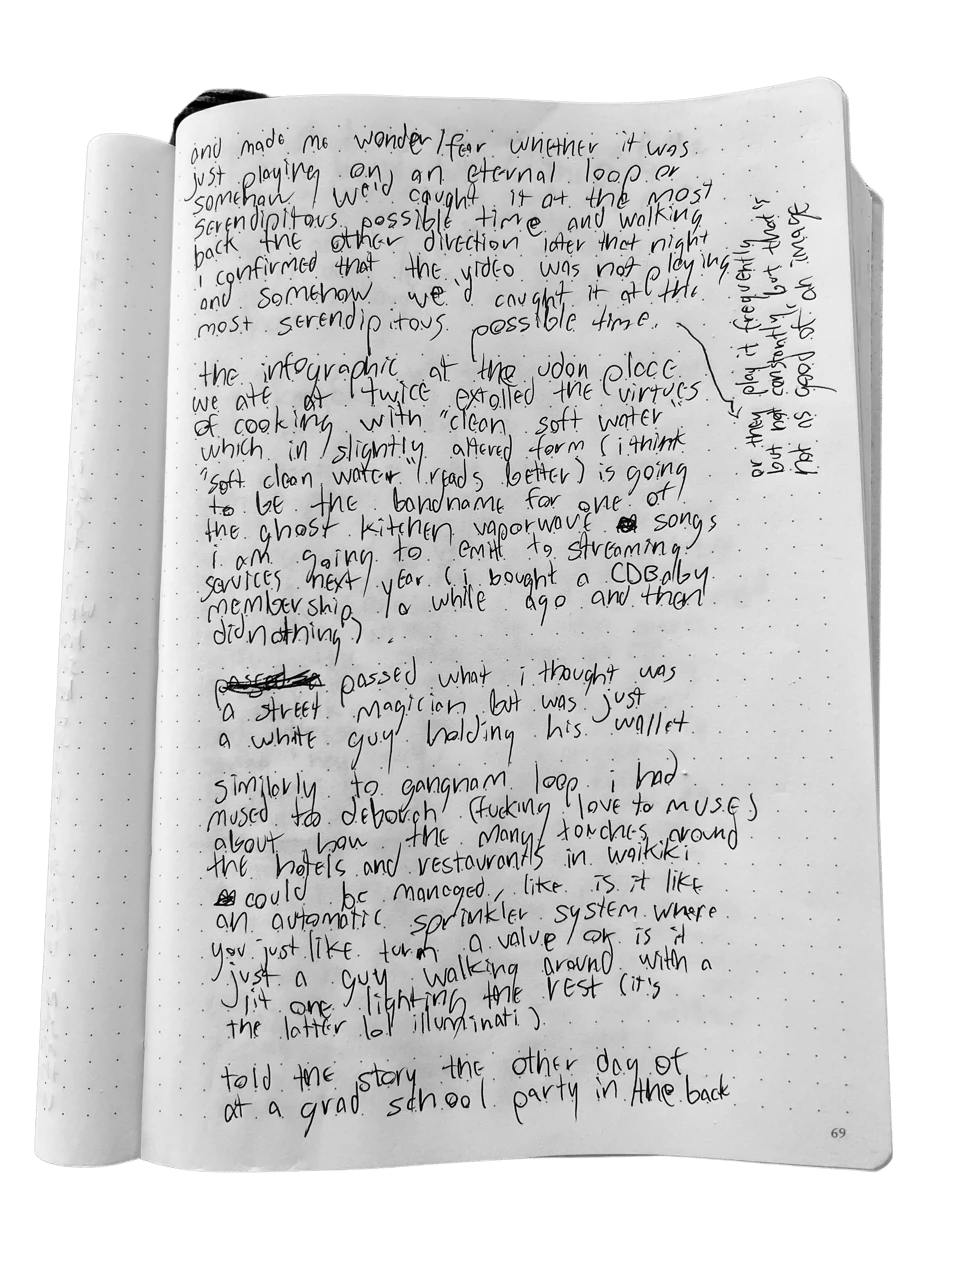 and made me wonder/fear whether it was
just playing on an eternal loop or
somehow we'd caught it at the most
serendipitous possible time and walking
back the other direction later that night
i confirmed that the video was not playing
and somehow we'd caught it at the
most serendipitous possible time.
or they play it frequently
but not constantly but that's
not as good of an image
the infographic at the udon place
we ate at twice extolled the virtues
of cooking with "clean soft water"
which in slightly altered form (i think
"soft clean water" reads better) is going
to be the bandname for one of
the ghost kitchen vaporwave songs
i am going to emit to streaming
services next year (i bought a CDBaby
membership a while ago and then
did nothing)
passed what i thought was
a street magician but was just
a white guy holding his wallet
similarly to gangnam loop i had
mused to deborah (fucking love to MUSE)
about how the many torches around
the hotels and restaurants in waikiki
could be managed, like is it like
an automatic sprinkler system where
you just like turn a valve or is it
just a guy walking around with a
lit one lighting the rest (it's
the latter lol illuminati)
told the story the other day of
at a grad school party in the back
69